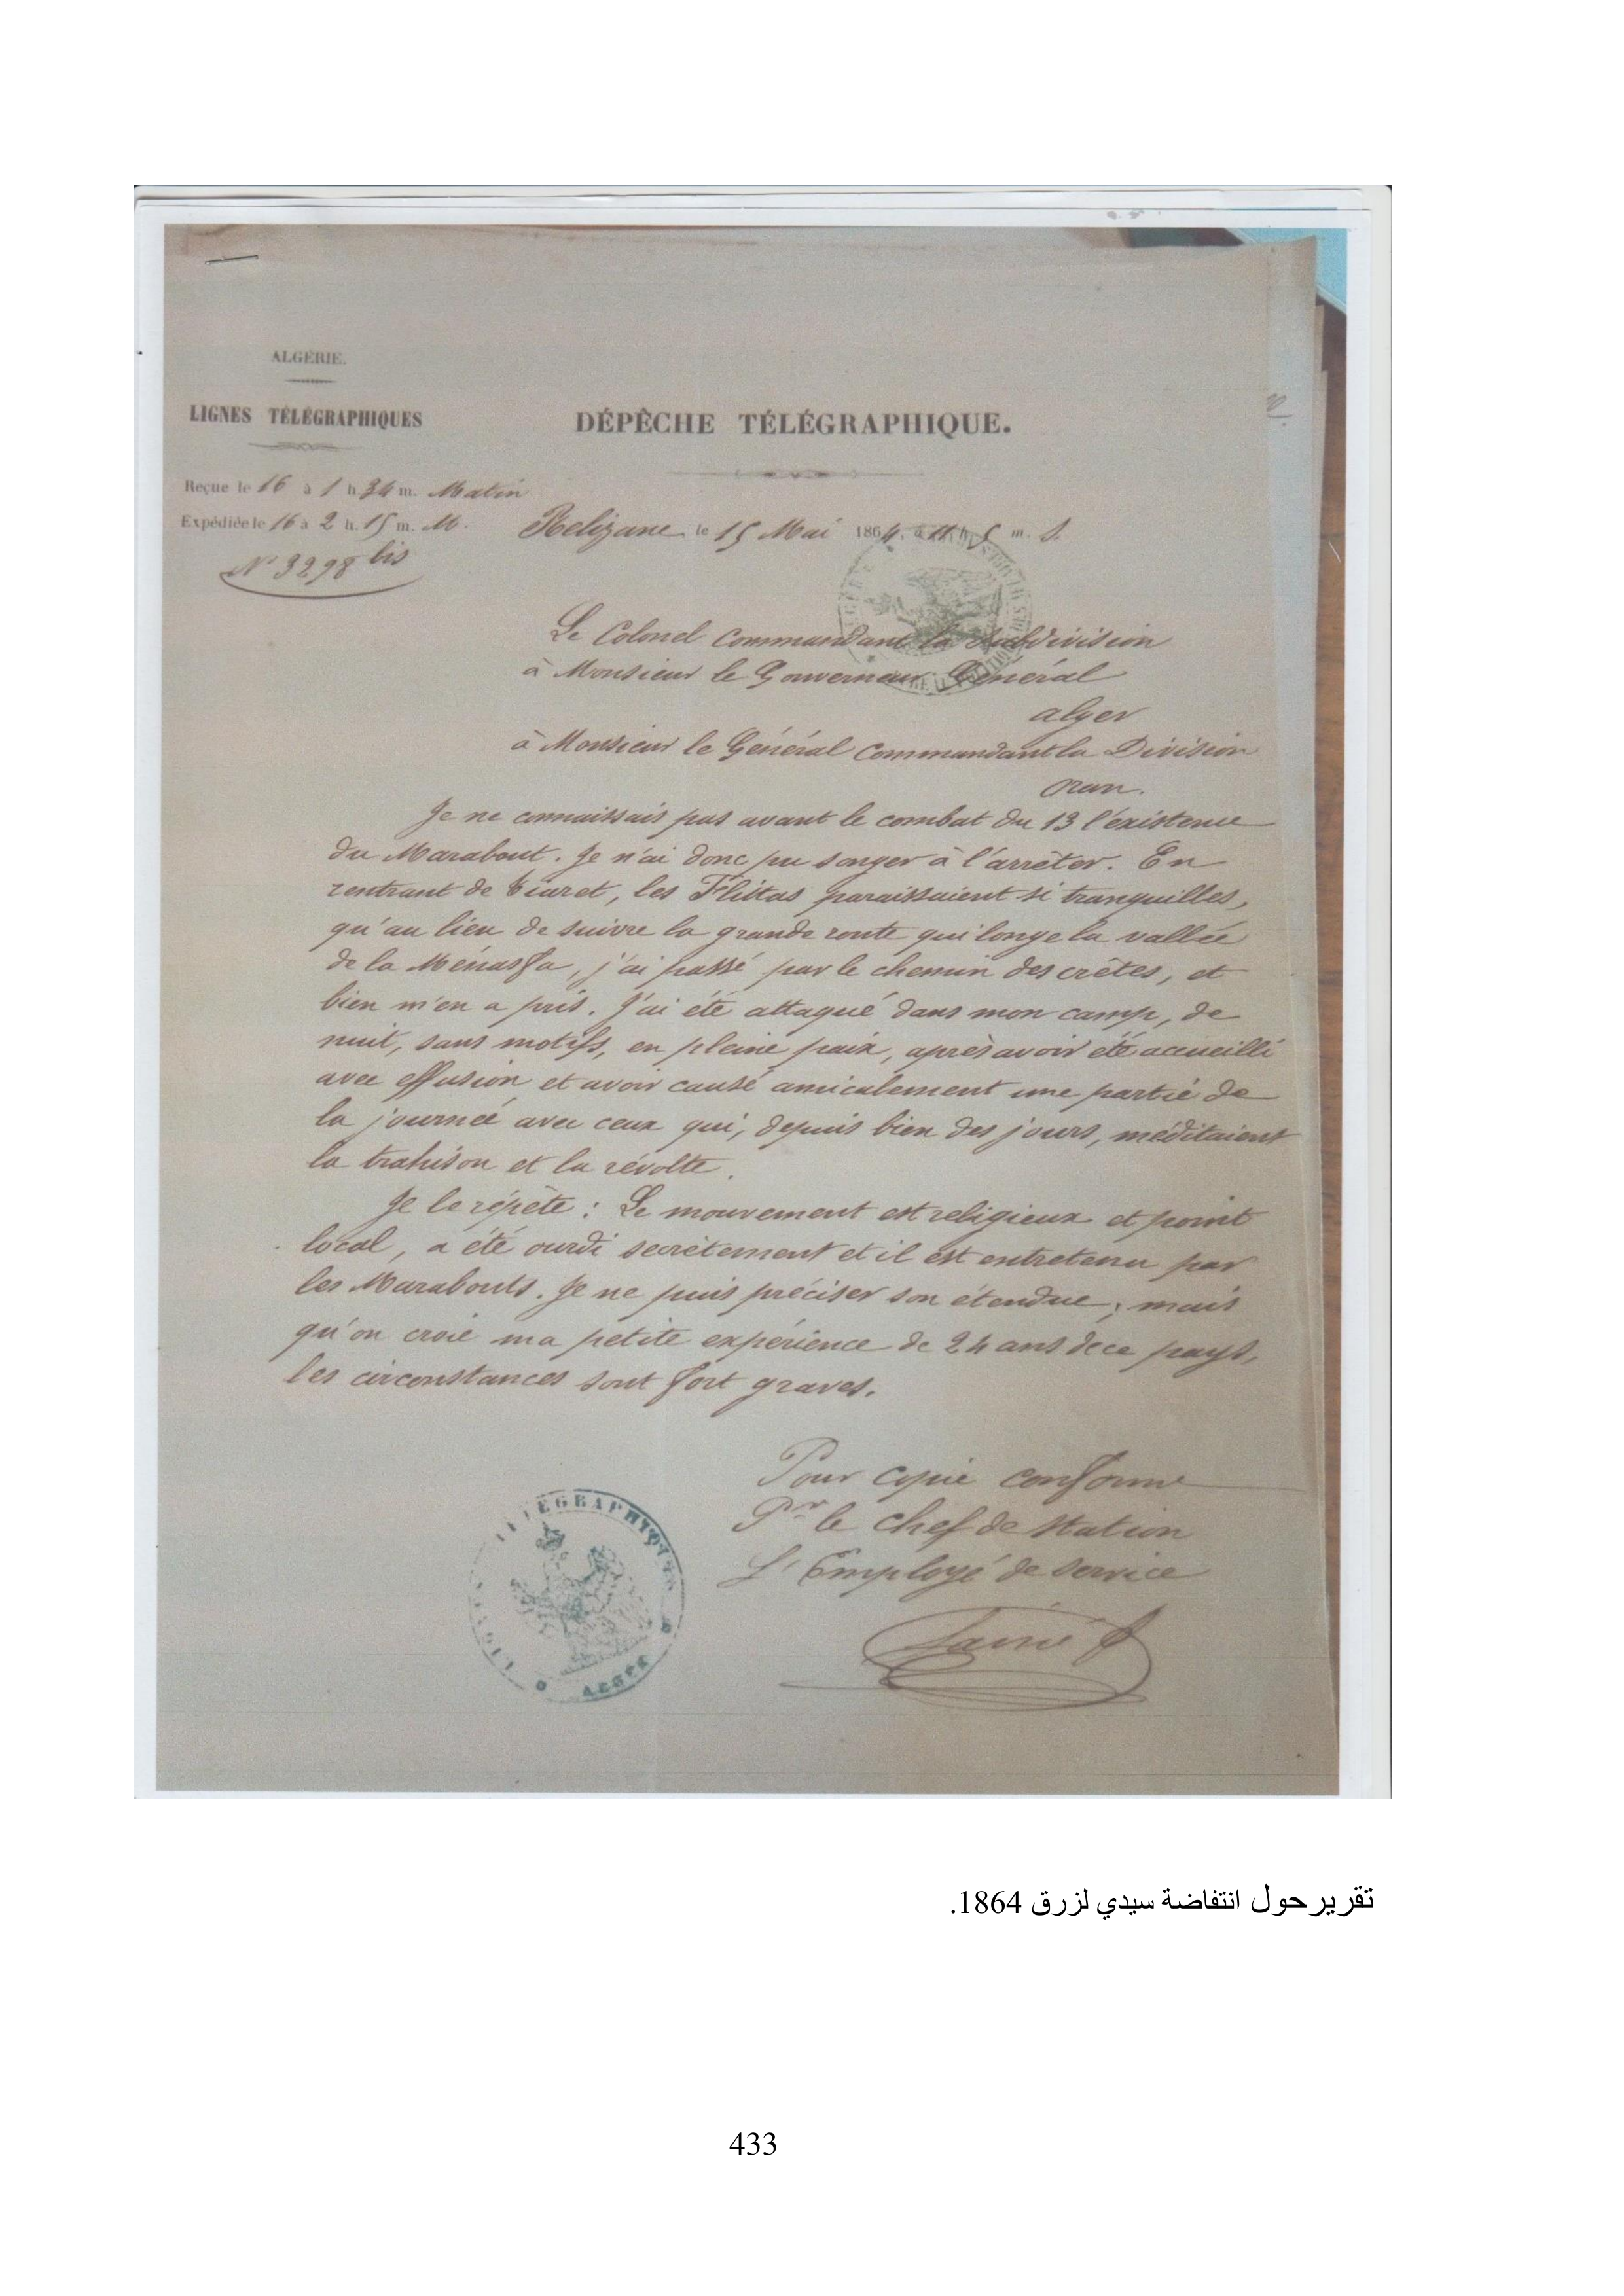 ALGÉRIE.
LIGNES TÉLÉGRAPHIQUES
DÉPÊCHE TÉLÉGRAPHIQUE.
Reçue le 16 à 1 h 34 m. Matin
Expédiée le 16 à 2 h. 15 m. M.
N° 3298 bis
Relizane le 15 Mai 1864, à 11 h 5 m. S.
Le Colonel Commandant la Subdivision
à Monsieur le Gouverneur Général
alger
à Monsieur le Général Commandant la Division
Oran.
Je ne connaissais pas avant le combat du 13 l'existence
du Marabout. Je n'ai donc pu songer à l'arrêter. En
rentrant de Tiaret, les Flittas paraissaient si tranquilles,
qu'au lieu de suivre la grande route qui longe la vallée
de la Ménasfa, j'ai passé par le chemin des crêtes, et
bien m'en a pris. J'ai été attaqué dans mon camp, de
nuit, sans motifs, en pleine paix, après avoir été accueilli
avec effusion et avoir causé amicalement une partie de
la journée avec ceux qui, depuis bien des jours, méditaient
la trahison et la révolte.
Je le répète : Le mouvement est religieux et point
local, a été ourdi secrètement et il est entretenu par
les Marabouts. Je ne puis préciser son étendue ; mais
qu'on croie ma petite expérience de 24 ans de ce pays,
les circonstances sont fort graves.
Pour copie conforme
Pr le chef de station
L'Employé de service
TÉLÉGRAPHIQUES
ALGER
تقرير حول انتفاضة سيدي لزرق 1864.
433